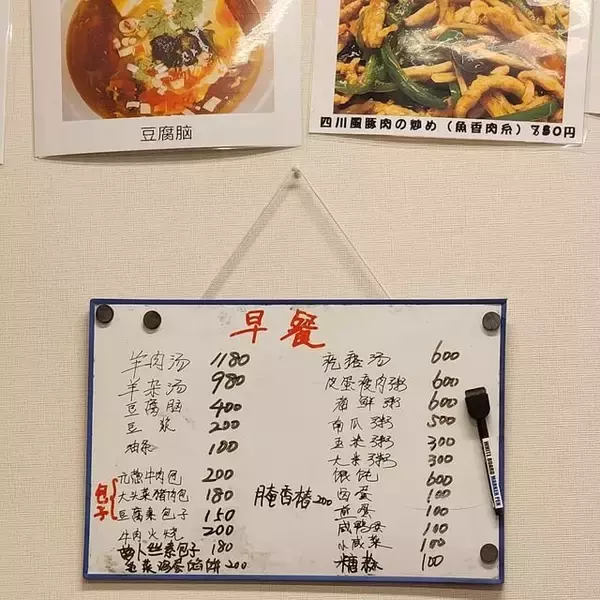 豆腐脑
四川風豚肉の炒め（魚香肉糸）780円
早餐
羊肉汤 1180
羊杂汤 980
豆腐脑 400
豆浆 200
油条 100
包子
元葱牛肉包 200
大头菜猪肉包 180
豆腐素包子 150
牛肉火烧 200
萝卜丝素包子 180
韭菜鸡蛋馅饼 200
腌香椿 200
疙瘩汤 600
皮蛋瘦肉粥 600
海鲜粥 600
南瓜粥 500
玉米粥 300
大米粥 300
馄饨 600
卤蛋 100
煎蛋 100
咸鸭蛋 100
小咸菜 100
糖蒜 100
WHITE BOARD MARKER PEN